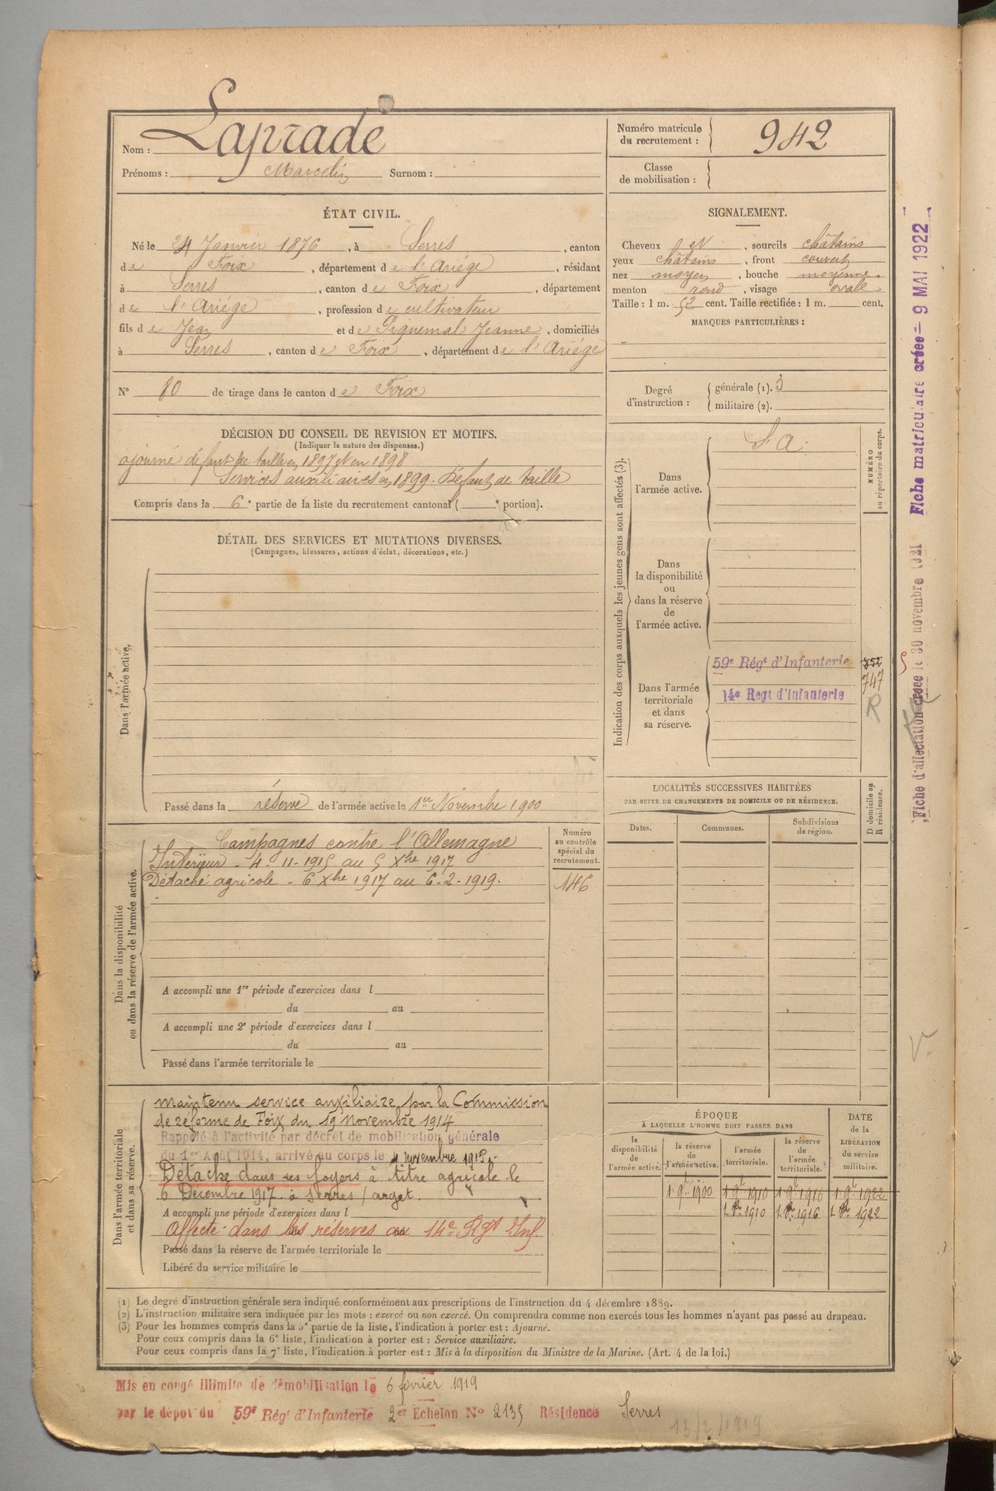 Nom : Laprade
Prénoms : Marcelin Surnom :
Numéro matricule du recrutement : 942
Classe de mobilisation :
ÉTAT CIVIL.
Né le 24 Janvier 1876, à Serres, canton
de Foix, département de l'Ariége, résidant
à Serres, canton de Foix, département
de l'Ariége, profession de cultivateur
fils de Jean et de Piquemal Jeanne, domiciliés
à Serres, canton de Foix, département de l'Ariége
N° 80 de tirage dans le canton de Foix
SIGNALEMENT.
Cheveux et, sourcils châtains
yeux châtains, front couvert
nez moyen, bouche moyenne
menton rond, visage ovale
Taille : 1 m. 52 cent. Taille rectifiée : 1 m. cent.
MARQUES PARTICULIÈRES :
Degré d'instruction :
générale (1). 3
militaire (2).
DÉCISION DU CONSEIL DE REVISION ET MOTIFS.
(Indiquer la nature des dispenses.)
ajourné défaut de taille en 1897 et en 1898
Services auxiliaires en 1899. Défaut de taille
Compris dans la 6e partie de la liste du recrutement cantonal ( e portion).
DÉTAIL DES SERVICES ET MUTATIONS DIVERSES.
(Campagnes, blessures, actions d'éclat, décorations, etc.)
Dans l'armée active.
Passé dans la réserve de l'armée active le 1er Novembre 1900
Indication des corps auxquels les jeunes gens sont affectés (3).
Dans l'armée active.
S A.
NUMÉRO au répertoire du corps.
Dans la disponibilité ou dans la réserve de l'armée active.
Dans l'armée territoriale et dans sa réserve.
59e Régt d'Infanterie
14e Regt d'Infanterie
747
R
Dans la disponibilité ou dans la réserve de l'armée active.
Campagnes contre l'Allemagne
Intérieur - 4-11-1915 au 5 Xbre 1917
Détaché agricole - 6 Xbre 1917 au 6-2-1919.
Numéro au contrôle spécial du recrutement.
146
A accompli une 1re période d'exercices dans l
du au
A accompli une 2e période d'exercices dans l
du au
Passé dans l'armée territoriale le
LOCALITÉS SUCCESSIVES HABITÉES
PAR SUITE DE CHANGEMENTS DE DOMICILE OU DE RÉSIDENCE.
Dates. Communes. Subdivisions de région.
D domicile ou R résidence.
Dans l'armée territoriale et dans sa réserve.
maintenu service auxiliaire par la Commission
de réforme de Foix du 19 novembre 1914
Rappelé à l'activité par décret de mobilisation générale
du 1er Août 1914, arrivé au corps le 4 novembre 1915.
Détaché dans ses foyers à titre agricole le
6 Décembre 1917 à Serres
A accompli une période d'exercices dans l
Affecté dans les réserves au 14e Rgt Inf.
Passé dans la réserve de l'armée territoriale le
Libéré du service militaire le
ÉPOQUE
A LAQUELLE L'HOMME DOIT PASSER DANS
la disponibilité de l'armée active. la réserve de l'armée active. l'armée territoriale. la réserve de l'armée territoriale.
DATE de la LIBÉRATION du service militaire.
1 9bre 1900 1 9bre 1910 1 9bre 1916 1 9bre 1922
1 8bre 1910 1 8bre 1916 1 8bre 1922
(1) Le degré d'instruction générale sera indiqué conformément aux prescriptions de l'instruction du 4 décembre 1889.
(2) L'instruction militaire sera indiquée par les mots : exercé ou non exercé. On comprendra comme non exercés tous les hommes n'ayant pas passé au drapeau.
(3) Pour les hommes compris dans la 5e partie de la liste, l'indication à porter est : Ajourné.
Pour ceux compris dans la 6e liste, l'indication à porter est : Service auxiliaire.
Pour ceux compris dans la 7e liste, l'indication à porter est : Mis à la disposition du Ministre de la Marine. (Art. 4 de la loi.)
Mis en congé illimité de démobilisation le 6 février 1919
par le dépot du 59e Régt d'Infanterie 2er Echelon No 2135 Résidence Serres
13/2/1919
Fiche d'affectation créée le 30 novembre 1921
Fiche matriculaire créée - 9 MAI 1922